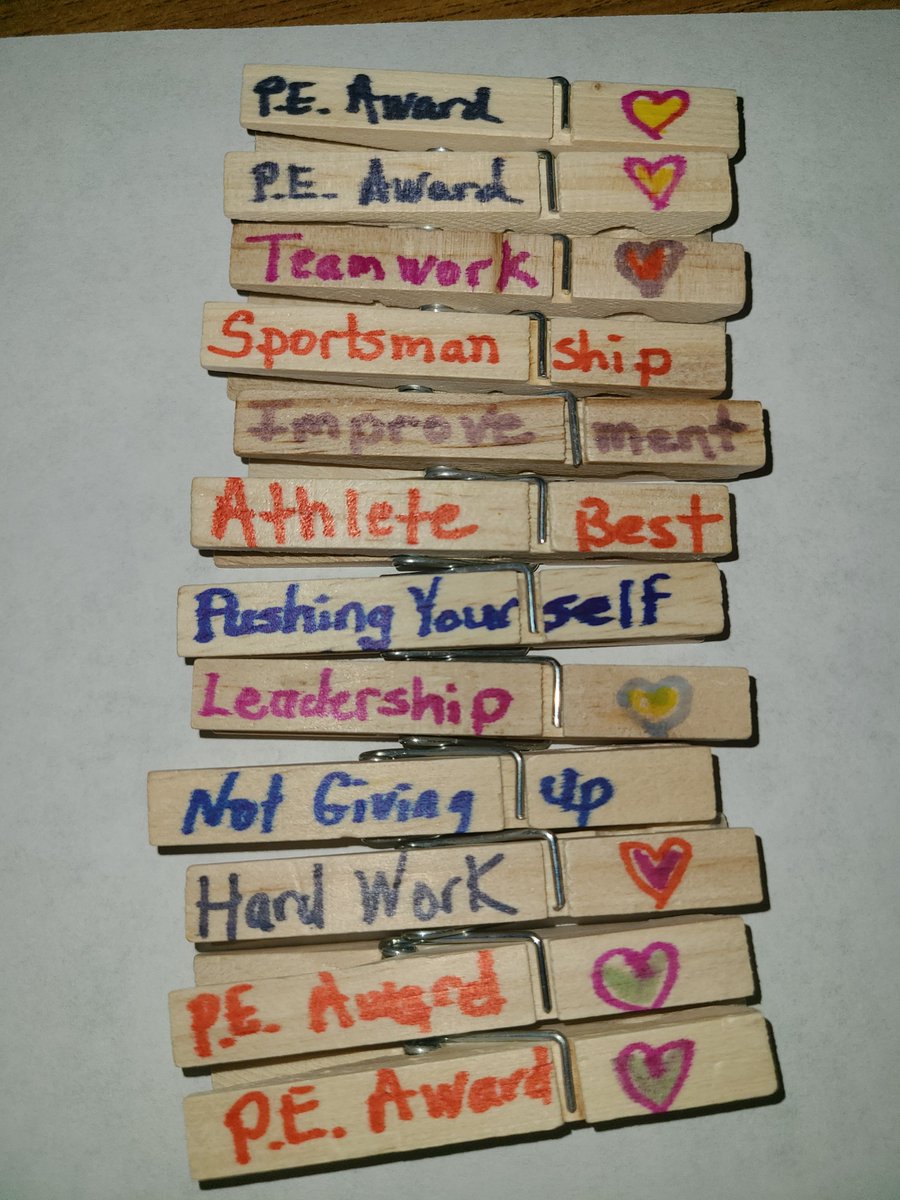 P.E. Award
P.E. Award
Teamwork
Sportsman ship
Improve ment
Athlete Best
Pushing Your self
Leadership
Not Giving up
Hard Work
P.E. Award
P.E. Award